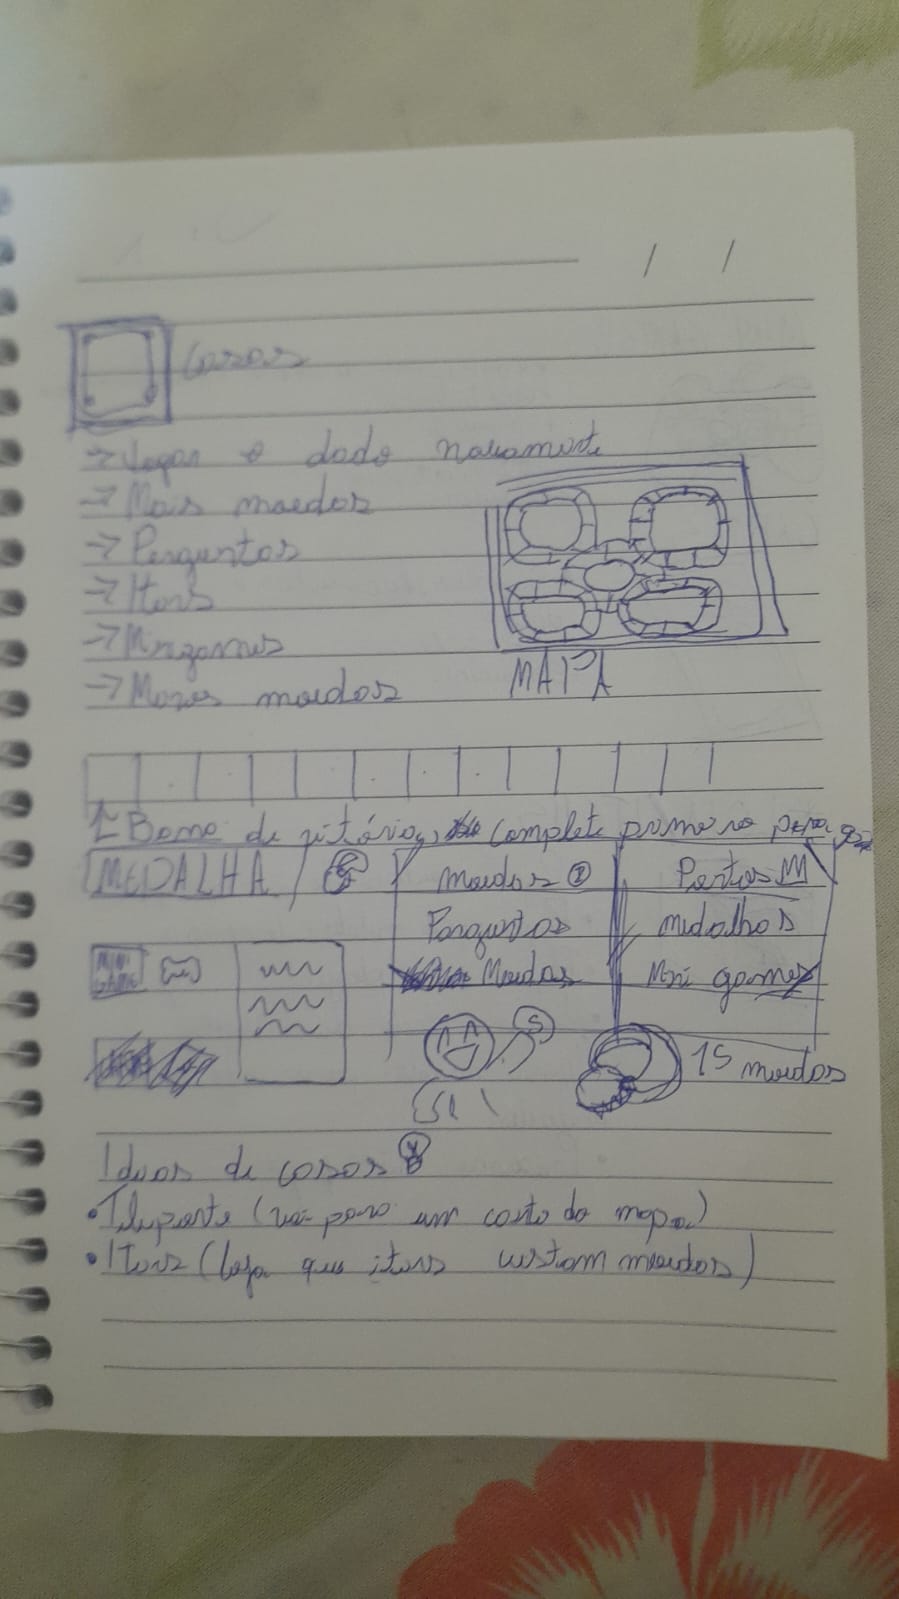 Casas
→ Jogar o dado novamente
→ Mais moedas
→ Perguntas
→ Itens
→ Minigames
→ Menos moedas
MAPA
↑ Barra de vitória, complete primeiro para
MEDALHA
Moedas
Perguntas
Moedas
Pontos
medalhas
Mini games
MINI GAME
S
15 moedas
Ideas de casas
• Teleporte (vai para um canto do mapa)
• Itens (loja que itens custam moedas)